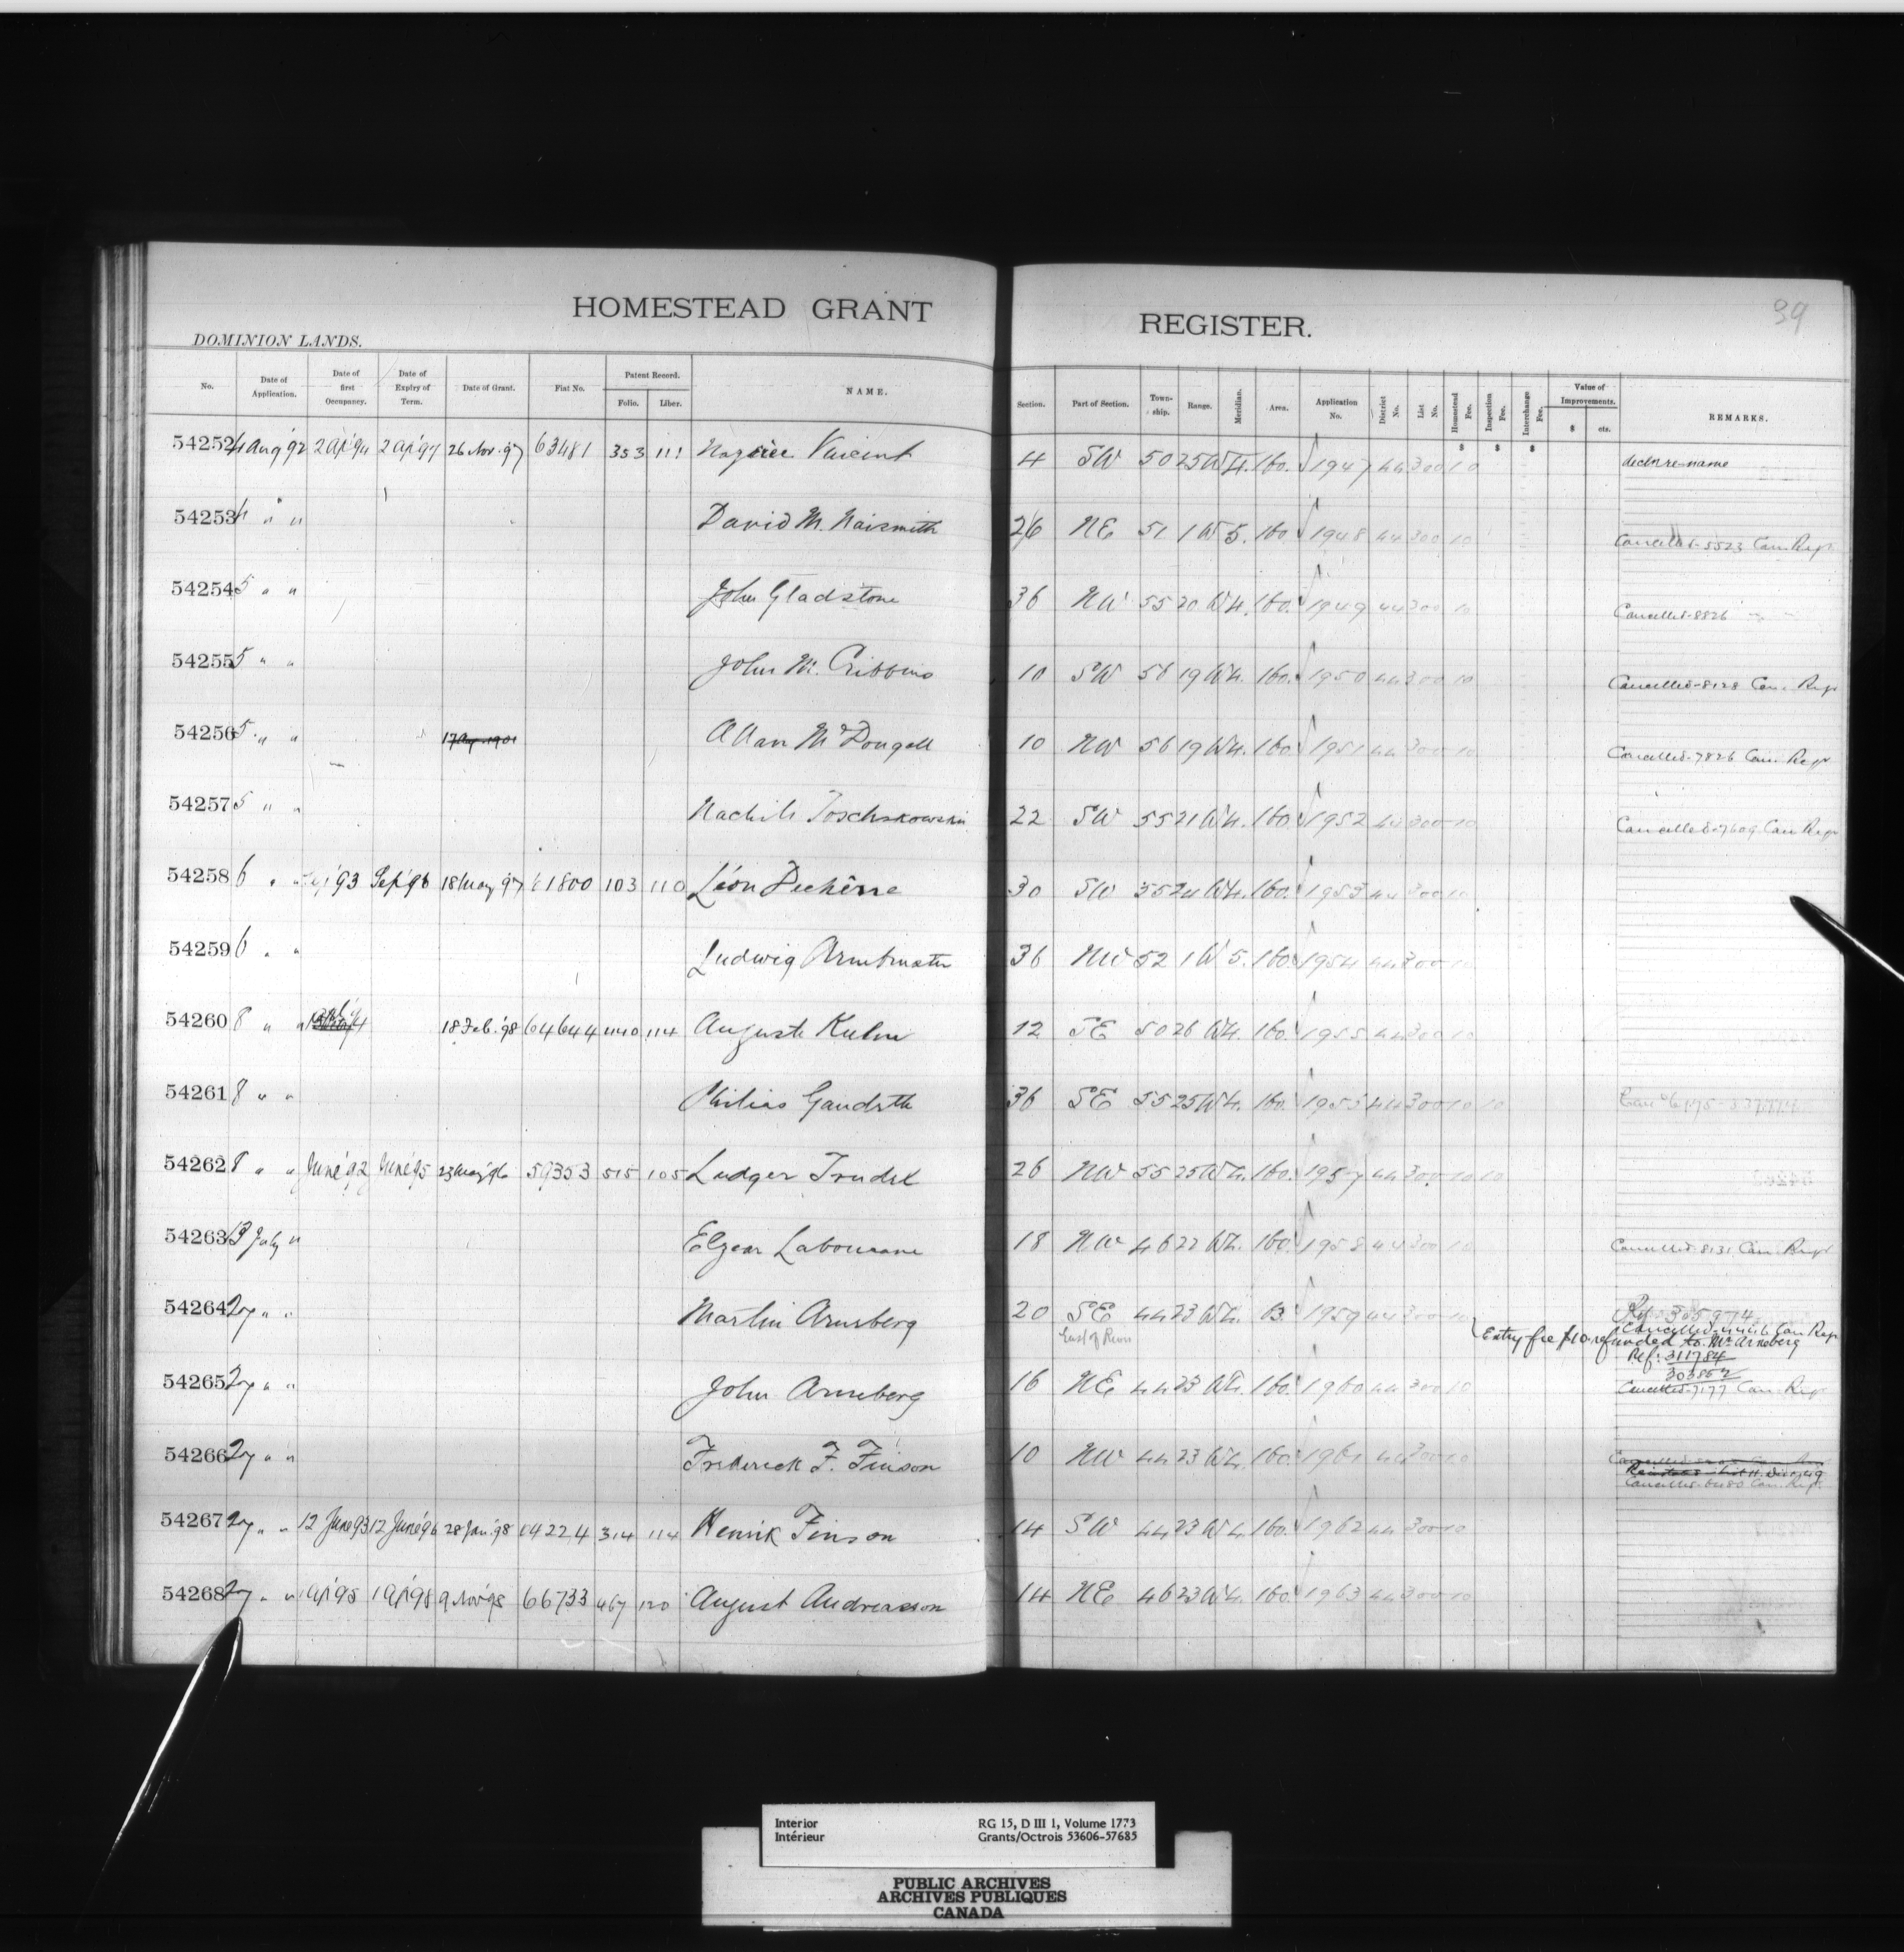 HOMESTEAD GRANT REGISTER.
39
DOMINION LANDS.
No. Date of Application. Date of first Occupancy. Date of Expiry of Term. Date of Grant. Fiat No. Patent Record. Folio. Liber. NAME. Section. Part of Section. Township. Range. Meridian. Area. Application No. District No. List No. Homestead Fee. Inspection Fee. Interchange Fee. Value of Improvements. $ cts. REMARKS.
54252 4 Aug '92 2 Apl '94 2 Apl '97 26 Nov. '97 63481 353 111 Vincent 4 SW 50 25 W 4. 160. 1947 44 300 10
54253 4 " " David M. Naismith 26 NE 51 1 W 5. 160 1948 44 300 10 Cancelled-5523 Can. Regr
54254 5 " " John Gladstone 36 NW 55 20 W 4. 160. 1949 44 300 10 Cancelled-8826 " "
54255 5 " " John M. Cribbins 10 SW 56 19 W 4. 160. 1950 44 300 10 Cancelled-8128 Can. Regr
54256 5 " " 17 Aug. 1901 Allan McDougall 10 NW 56 19 W 4. 160. 1951 44 300 10 Cancelled-7826 Can. Regr
54257 5 " " 22 SW 55 21 W 4. 160. 1952 44 300 10 Cancelled-7609 Can Regr
54258 6 " " '93 Sep '96 18 May 97 61800 103 110 Léon 30 SW 55 24 W 4. 160. 1953 44 300 10
54259 6 " " Ludwig 36 NW 52 1 W 5. 160. 1954 44 300 10
54260 8 " " 18 Feb. '98 64644 440 114 Auguste Kuhn 12 SE 50 26 W 4. 160. 1955 44 300 10
54261 8 " " 36 SE 55 25 W 4. 160. 44 300 10 10
54262 8 " " June '92 June '95 23 May '96 59353 515 105 Ludger Trudel 26 NW 55 25 W 4. 160. 1957 44 300 10 10
54263 13 July " Elzear 18 NW 46 22 W 4. 160. 1958 44 300 10 Cancelled-8131 Can. Regr
54264 27 " " Martin Arneberg 20 SE 44 23 W 4. 1959 44 300 10 Ref. 305974
East of River
Cancelled Can Regr
Entry fee $10 refunded to Mr Arneberg
Ref: 311784
303862
54265 27 " " John Arneberg 16 NE 44 23 W 4. 160. 1960 44 300 10 Cancelled-7177 Can. Regr
54266 27 " " Frederick F. Finson 10 NW 44 23 W 4. 160. 1961 44 300 10
Cancelled-6480 Can. Regr
54267 27 " " 12 June 93 12 June '96 28 Jan. '98 64224 314 114 Henrik Finson 14 SW 44 23 W 4. 160. 1962 44 300 10
54268 27 " " 1 Apl '95 1 Apl '98 9 Nov '98 66733 467 120 August Andreasson 14 NE 46 23 W 4. 160. 1963 44 300 10
Interior RG 15, D III 1, Volume 1773
Intérieur Grants/Octrois 53606-57685
PUBLIC ARCHIVES
ARCHIVES PUBLIQUES
CANADA